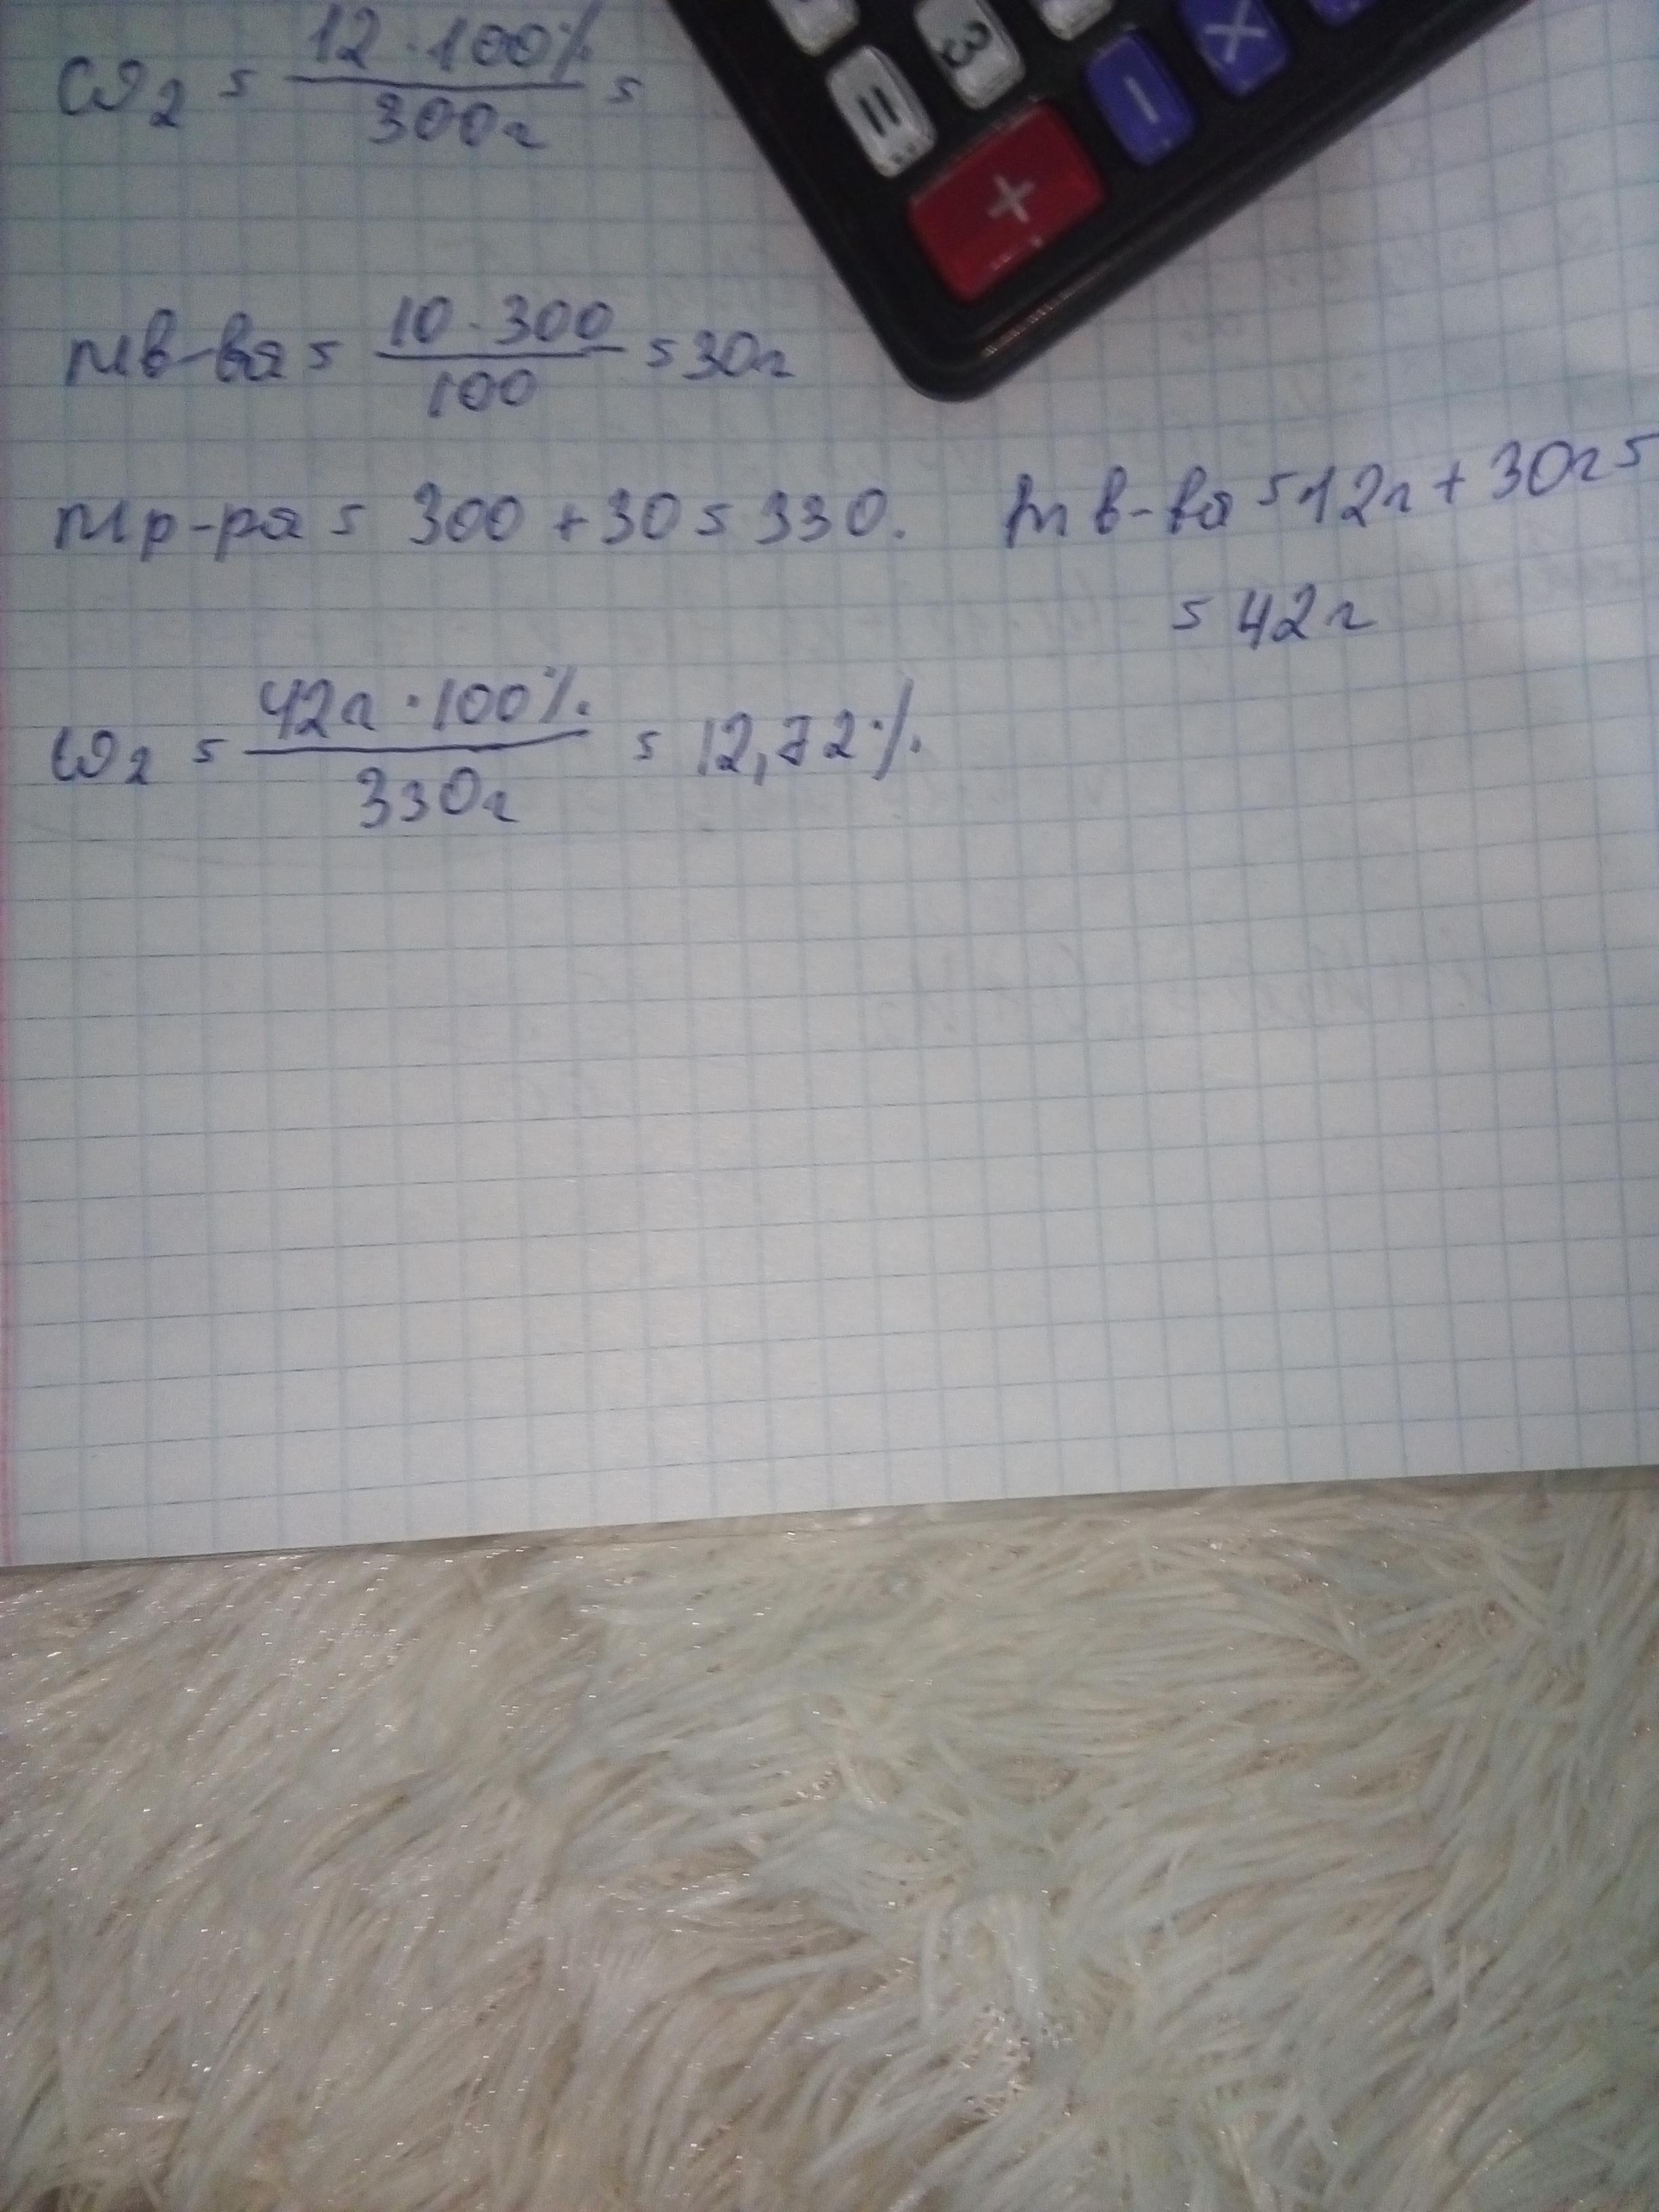 ω₂ = 12 · 100% / 300г =
3
=
+
−
×
mв-ва = 10 · 300 / 100 = 30г
mр-ра = 300 + 30 = 330. m в-ва = 12г + 30г =
= 42г
ω₂ = 42г · 100% / 330г = 12,72%